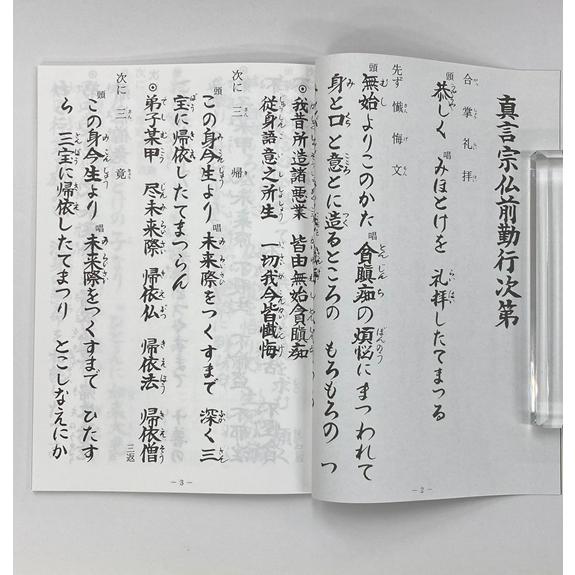 真言宗仏前勤行次第
合掌礼拝
頭 恭しく 唱 みほとけを 礼拝したてまつる
先ず 懺悔文
頭 無始よりこのかた 唱 貪瞋痴の煩悩にまつわれて
身と口と意とに造るところの もろもろの つ
－2－
◉我昔所造諸悪業 皆由無始貪瞋痴
従身語意之所生 一切我今皆懺悔
次に 三帰
頭 この身今生より 唱 未来際をつくすまで 深く三
宝に帰依したてまつらん
◉弟子某甲 尽未来際 帰依仏 帰依法 帰依僧 三返
次に 三竟
頭 この身今生より 唱 未来際をつくすまで ひたす
ら 三宝に帰依したてまつり とこしなえにか
－3－